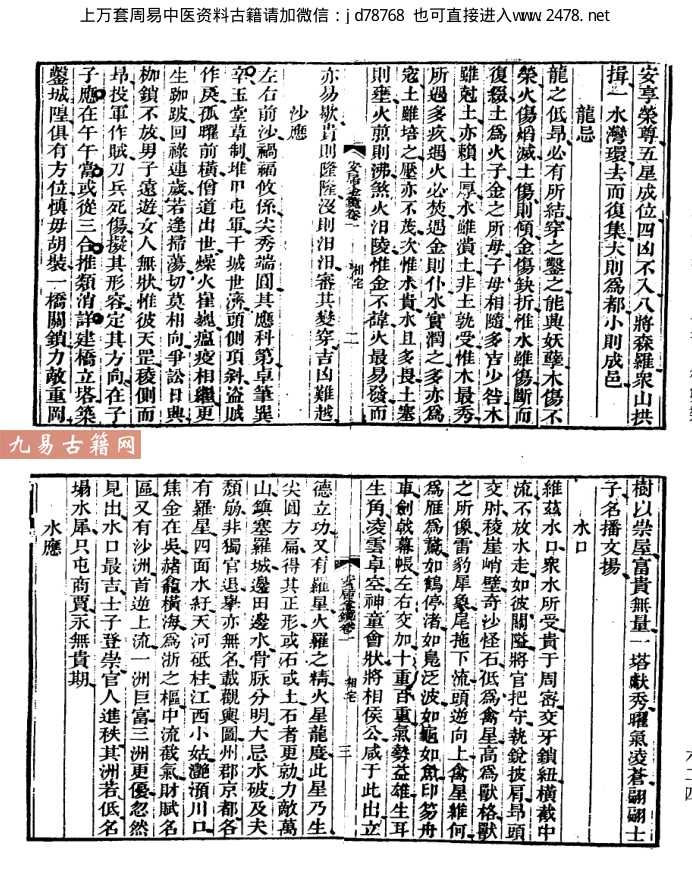 上万套周易中医资料古籍请加微信：jd78768 也可直接进入www.2478.net
安享榮尊五星成位四凶不入八將森羅衆山拱
揖一水灣環去而復集大則爲都小則成邑
龍忌
龍之低昻必有所結穿之鑿之能興妖孽木傷不
榮火傷焰滅土傷則傾金傷缺折惟水雖傷斷而
復綴土爲火子金之所母子母相隨多吉少咎木
雖尅土亦賴土厚水雖潰土非土孰受惟木最秀
所遇多疾遇火必焚遇金則仆水實潤之多亦爲
寇土雖培之壓亦不茂次惟水貴水且多畏土塞
則壅火煎則沸煞火汨陵惟金不諱火最易發而
安居金鏡卷一 相宅 二
亦易歇貴則隆隆沒則汨汨審其變穿吉凶難越
沙應
左右前沙禍福攸係尖秀端圓其應科第卓筆巽
辛玉堂草制堆甲屯軍干城世濟頭側項斜盜賊
作戾孤曜前橫僧道出世燥火崔巍瘟疫相繼更
生跏跛回祿連歲若逢掃蕩切莫相向爭訟日興
枷鎖不放男子遠遊女人無狀惟彼天罡稜側而
昻投軍作賊刀兵死傷擬其形容定其方向在子
子應在午午當或從三合推類消詳建橋立塔築
鑿城隍俱有方位慎毋胡裝一橋關鎖力敵重岡
九易古籍网
樹以崇屋富貴無量一塔獻秀曜氣凌蒼翩翩士
子名播文揚
水口
維茲水口衆水所受貴于周密交牙鎖紐橫截中
流不放水走如彼關隘將官把守執銳披肩昻頭
交肘稜崖峭壁奇沙怪石低爲禽星高爲獸格獸
之所像雷豹犀象尾拖下流頭逆向上禽星維何
爲雁爲鵞如鶴停渚如鳧泛波如龜如魚印笏舟
車劍戟幕帳左右交加十重百重氣勢益雄生耳
生角凌雲卓空神童會狀將相侯公咸于此出立
安居金鏡卷一 相宅 三
德立功又有羅星火羅之精火星龍度此星乃生
尖圓方扁得其正形或石或土石者更勍力敵萬
山鎮塞羅城邊田邊水骨脉分明大忌水破及夫
頹觔非獨官退擧亦無名載觀輿圖州郡京都各
有羅星四面水紆天河砥柱江西小姑灔澦川口
焦金在吳赭龕橫海爲浙之樞中流截氣財賦名
區又有沙洲首逆上流一洲巨富三洲更優忽然
見出水口最吉士子登崇官人進秩其洲若低名
塌水犀只屯商賈永無貴期
水應
六二四